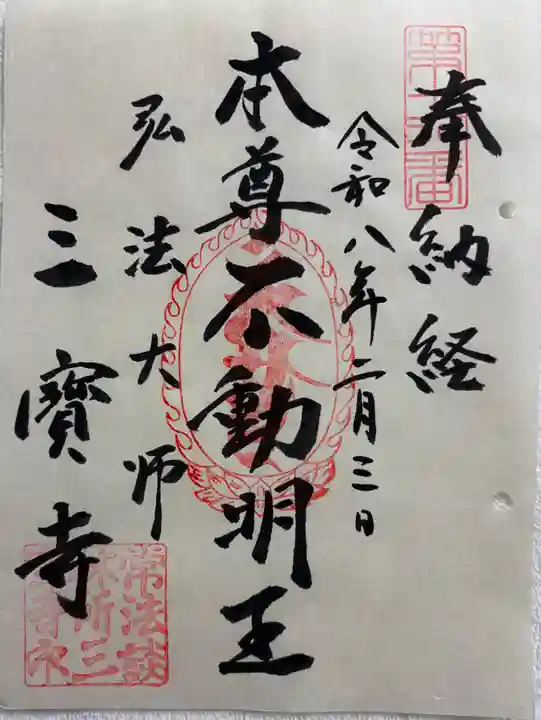 奉納経
令和八年二月三日
本尊不動明王
弘法大师
三寳寺